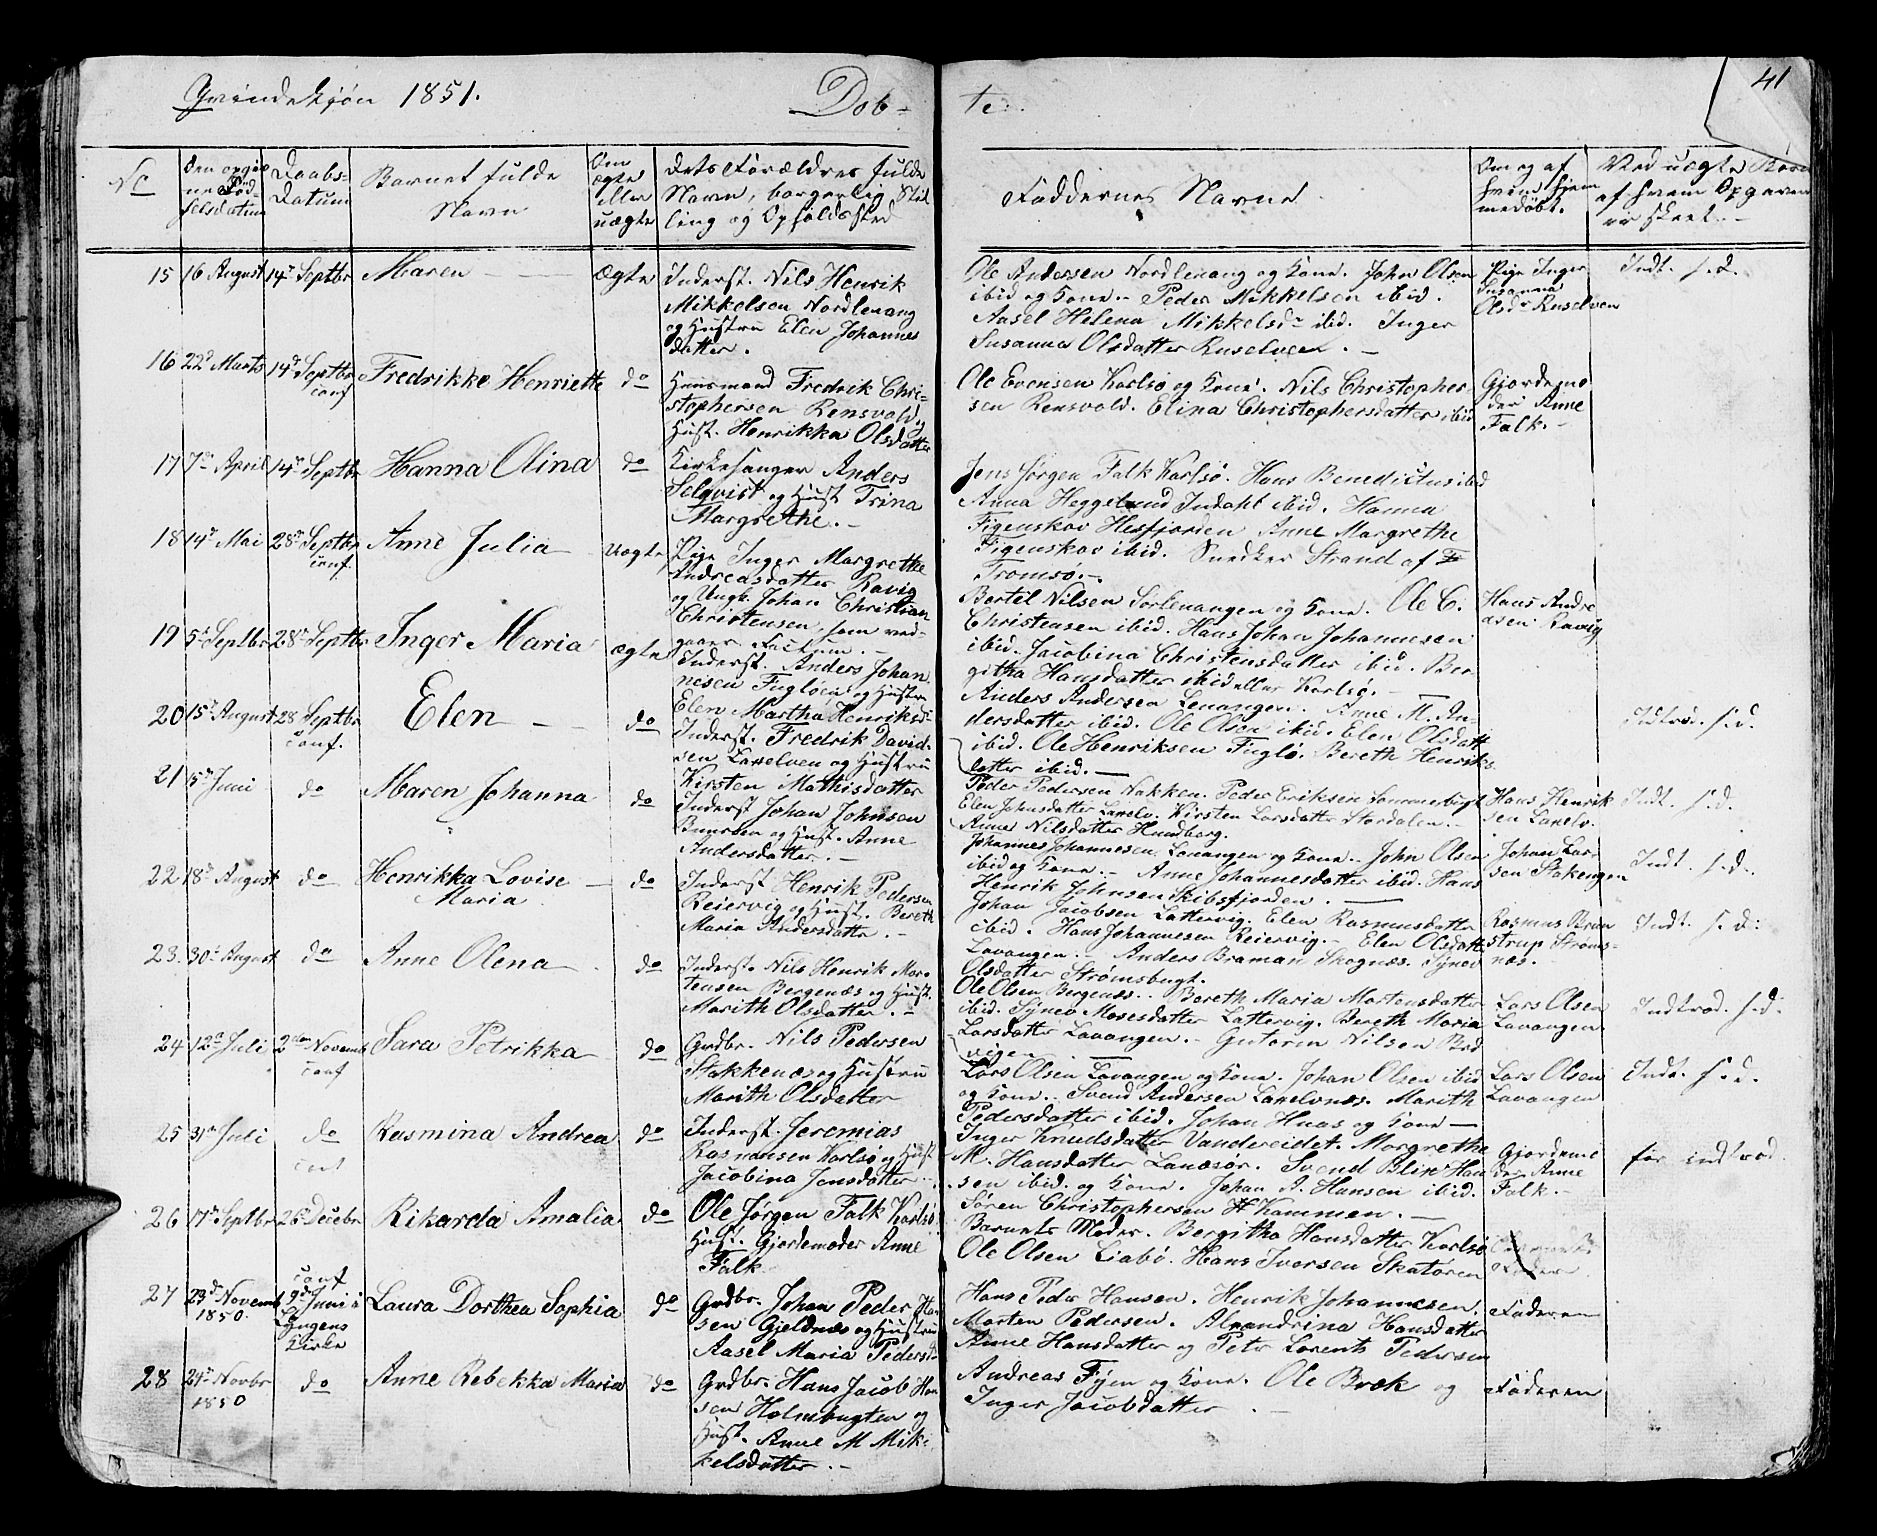 Qvindekjøn 1851.
Døb-
te.
41
No
Den opgiv
ne Fød-
selsdatum
Daabs-
Datum
Barnets fulde
Navn
Om
ægte
eller
uægte
Dets Forældres fulde
Navn, borgerlig Stil
ling og Opholdssted
Faddernes Navne
Om og af
hvem hjem
medøbt.
Ved uægte Børn
af hvem Opgaven
er skeet.
15 16 August 14de Septbr Maren Ægte
Inderst. Nils Henrik
Mikkelsen Nordlenang
og Hustru Elen Johannes
datter.
Ole Andersen Nordlenang og Kone. John Olsen
ibid og Kone. Peder Mikkelsen ibid.
Aasel Helena Mikkelsdr ibid. Inger
Susanna Olsdatter Russelven.
Pige Inger
Susanna
Olsdr Russelven
Indt. s. d.
16 22d Marts 14d Septbr conf Fredrikke Henriette do
Huusmand Fredrik Chri-
stophersen Rensvold og
Hust. Henrikka Olsdatter
Ole Evensen Karlsø og Kone. Nils Christopher-
sen Rensvold. Elina Christophersdatter ibid
Gjordemo
der Anne
Falk.
17 7de April 14de Septbr Hanna Olina do
Kirkesanger Anders
Selqvist og Hust Trina
Margrethe.
Jens Jørgen Falk Karlsø. Hans Benedictus ibid
Anna Heggelund Indahl ibid. Hanna
Figenskov Hessfjorden Anne Margrethe
Figenskov ibid. Snedker Strand af
Tromsø.
18 14de Mai 28de Septbr conf. Anne Julia Uægte
Pige Inger Margrethe
Andreasdatter Ravig
og Ungk. Johan Christian
Christensen, som ved-
gaaer Factum.
Bertel Nilsen Sørlenangen og Kone. Ole C.
Christensen ibid. Hans Johan Johannesen
ibid. Jacobina Christensdatter ibid. Ber
githa Hansdatter ibid eller Karlsø.
Hans Andre
asen Ravig
19 5te Septbr 28de Septbr Inger Maria ægte
Inderst. Anders Johan
nesen Fugløen og Hustru
Elen Martha Henriksdr
Anders Andersen Lenangen. Anne M. An-
dersdatter ibid. Ole Olsen ibid. Elen Olsdatt
ibid. Ole Henriksen Fuglø. Bereth Henriks
datter ibid.
Indtrod. s. d.
20 15de August 28 Septbr conf. Elen do
Inderst. Fredrik David-
sen Laxelven og Hustru
Kirsten Mathisdatter
Peder Pedersen Nakken. Peder Eriksen Sommerbugt
Elen Johnsdatter Laxelv. Kirsten Larsdatter Stordalen.
Anne Nilsdatter Hundberg.
Hans Henrik
sen Laxelv.
Indt. s. d.
21 5te Juni do Maren Johanna do
Inderst Johan Johnsen
og Hust. Anne
Andersdatter.
Johannes Johannesen Lavangen og Kone. John Olsen
ibid og Kone. Anne Johannesdatter ibid. Hans
Henrik Johnsen Skibsfjorden.
Johan Lar
sen Stakengen
Indt. s. d.
22 18de August do Henrikka Lovise
Maria do
Inderst Henrik Pedersen
Reiervig og Hust. Bereth
Maria Andersdattr.
Johan Jacobsen Lattervig. Elen Rasmusdatter
ibid. Hans Johannesen Reiervig. Elen Olsdatt
Lavangen. Anders Braman Skognæs. Synev
Olsdatter Strømsbugt.
Rasmus Brun
strup Strøms-
næs.
Indt. s. d.
23 30te August do Anne Olena do
Inderst. Nils Henrik Mor-
tensen Bergenæs og Hust.
Marith Olsdatter.
Ole Olsen Bergenæs. Bereth Maria Mortensdatter
ibid. Synev Mosesdatter Lattervig. Bereth Maria
Larsdatter Lavangen. Gutorm Nilsen Bred
vigen
Lars Olsen
Lavangen.
Indtrod. s. d.
24 12te Juli 2den Novemb conf Sara Petrikka do
Grdbr. Nils Pedersen
Stakkenæs og Hustru
Marith Olsdatter
Lars Olsen Lavangen og Kone. Johan Olsen ibid
og Kone. Svend Andersen Laxelvnæs. Marith
Pedersdatter ibid. Johan Haas og Kone
Lars Olsen
Lavangen
Indt. s. d.
25 31te Juli do conf Rasmina Andrea do
Inderst. Jeremias
Rasmussen Karlsø og Hust
Jacobina Jensdatter
Inger Knudsdatter Vandereidet. Margrethe
M. Hansdatter Lanesør. Svend Blix Han
sen ibid. og Kone. Johan A. Hansen ibid.
Gjordemo
der Anne
Falk.
før indtrod.
26 17de Septbr 26de Decebr Rikarda Amalia do
Ole Jørgen Falk Karlsø
Hust. Gjordemoder Anne
Falk
Søren Christophersen Kammen.
Barnets Moder. Bergitha Hansdatter Karlsø
Ole Olsen Liabø. Hans Iversen Skatøren
Barnets
Fader
27 23d Novemb
1850. conf
9de Juni i
Lyngens
Kirke Laura Dorthea Sophia do
Grdbr. Johan Peder Han
sen Gjeldnæs og Hustru
Aasel Maria Pedersdr
Hans Pedr Hansen. Henrik Johannesen.
Morten Pedersen. Alexandrina Hansdatter
Anne Hansdatter og Petr Lorents Pedersen
Faderen
28 24de Novbr
1850 do Anne Rebekka Maria do
Grdbr. Hans Jacob Han
sen Holmbugten og
Hust. Anne M Mik-
kelsdatter.
Andreas Fyen og Kone. Ole Bræk og
Inger Jacobdatter
Faderen